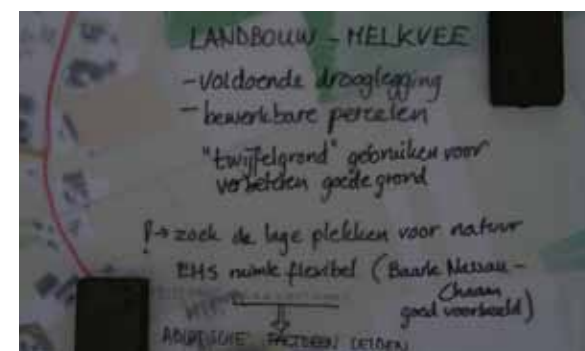 LANDBOUW - MELKVEE
- voldoende drooglegging
- bewerkbare percelen
"twijfelgrond" gebruiken voor
verbeteren goede grond
!→ zoek de lage plekken voor natuur
EHS ruimte flexibel (Baarle Nassau -
Chaam
goed voorbeeld)
ABIOTISCHE FACTOREN LEIDEN